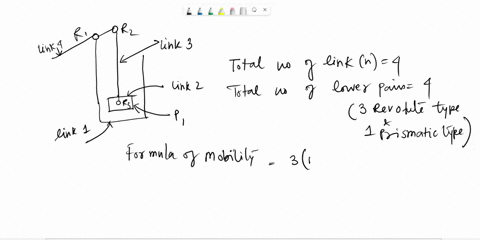 R1 R2
link 4
link 3
link 2
R3
P1
link 1
Total no of link (n) = 4
Total no of lower pairs = 4
(3 Revolute type
&
1 prismatic type)
Formula of mobility = 3(